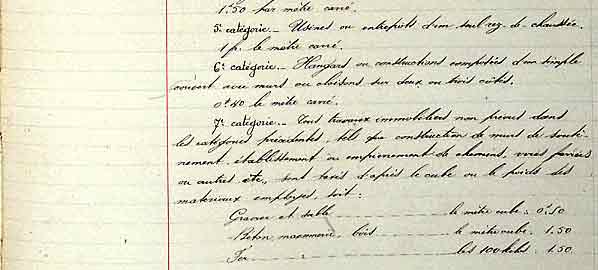 1f.50 par mètre carré.
5e catégorie._ Usines ou entrepôts d'un seul rez-de-chaussée.
1f. le mètre carré.
6e catégorie._ Hangars ou constructions composées d'un simple
couvert avec murs ou cloisons sur deux ou trois côtés.
0f.40 le mètre carré.
7e catégorie._ Tous travaux immobiliers non prévus dans
les catégories précédentes, tels que construction de murs de soutè-
nement, établissement ou empierrement de chemins, voies pavées
ou autres etc., sont taxés d'après le cube ou le poids des
matériaux employés, soit:
Gravier et sable le mètre cube. 0f.50
Béton, maçonnerie, bois le mètre cube. 1.50
Fer les 100 kilos. 1.50